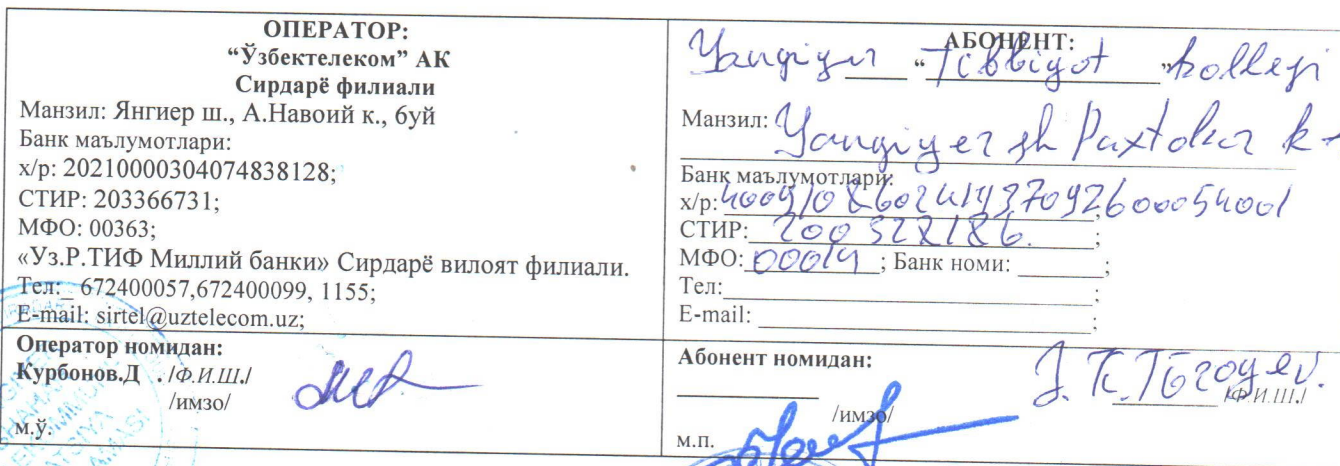 ОПЕРАТОР:
“Ўзбектелеком” АК
Сирдарё филиали
Манзил: Янгиер ш., А.Навоий к., 6уй
Банк маълумотлари:
х/р: 20210000304074838128;
СТИР: 203366731;
МФО: 00363;
«Уз.Р.ТИФ Миллий банки» Сирдарё вилоят филиали.
Тел:_ 672400057,672400099, 1155;
E-mail: sirtel@uztelecom.uz;
Оператор номидан:
Курбонов.Д . /Ф.И.Ш./
/имзо/
м.ў.
АБОНЕНТ:
Yangiyer “Tibbiyot” kolleji
Манзил: Yangiyer sh Paxtakor k-
Банк маълумотлари:
х/р: 400910860241937092600054001;
СТИР: 200322186;
МФО: 00014; Банк номи: ________;
Тел:________;
E-mail: ________;
Абонент номидан:
J. K. Tŏrayev.
/Ф.И.Ш./
/имзо/
м.п.